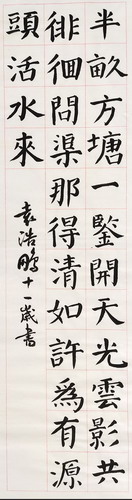 半畝方塘一鑒開天光雲影共
徘徊問渠那得清如許爲有源
頭活水來
袁浩鵬十一歲書